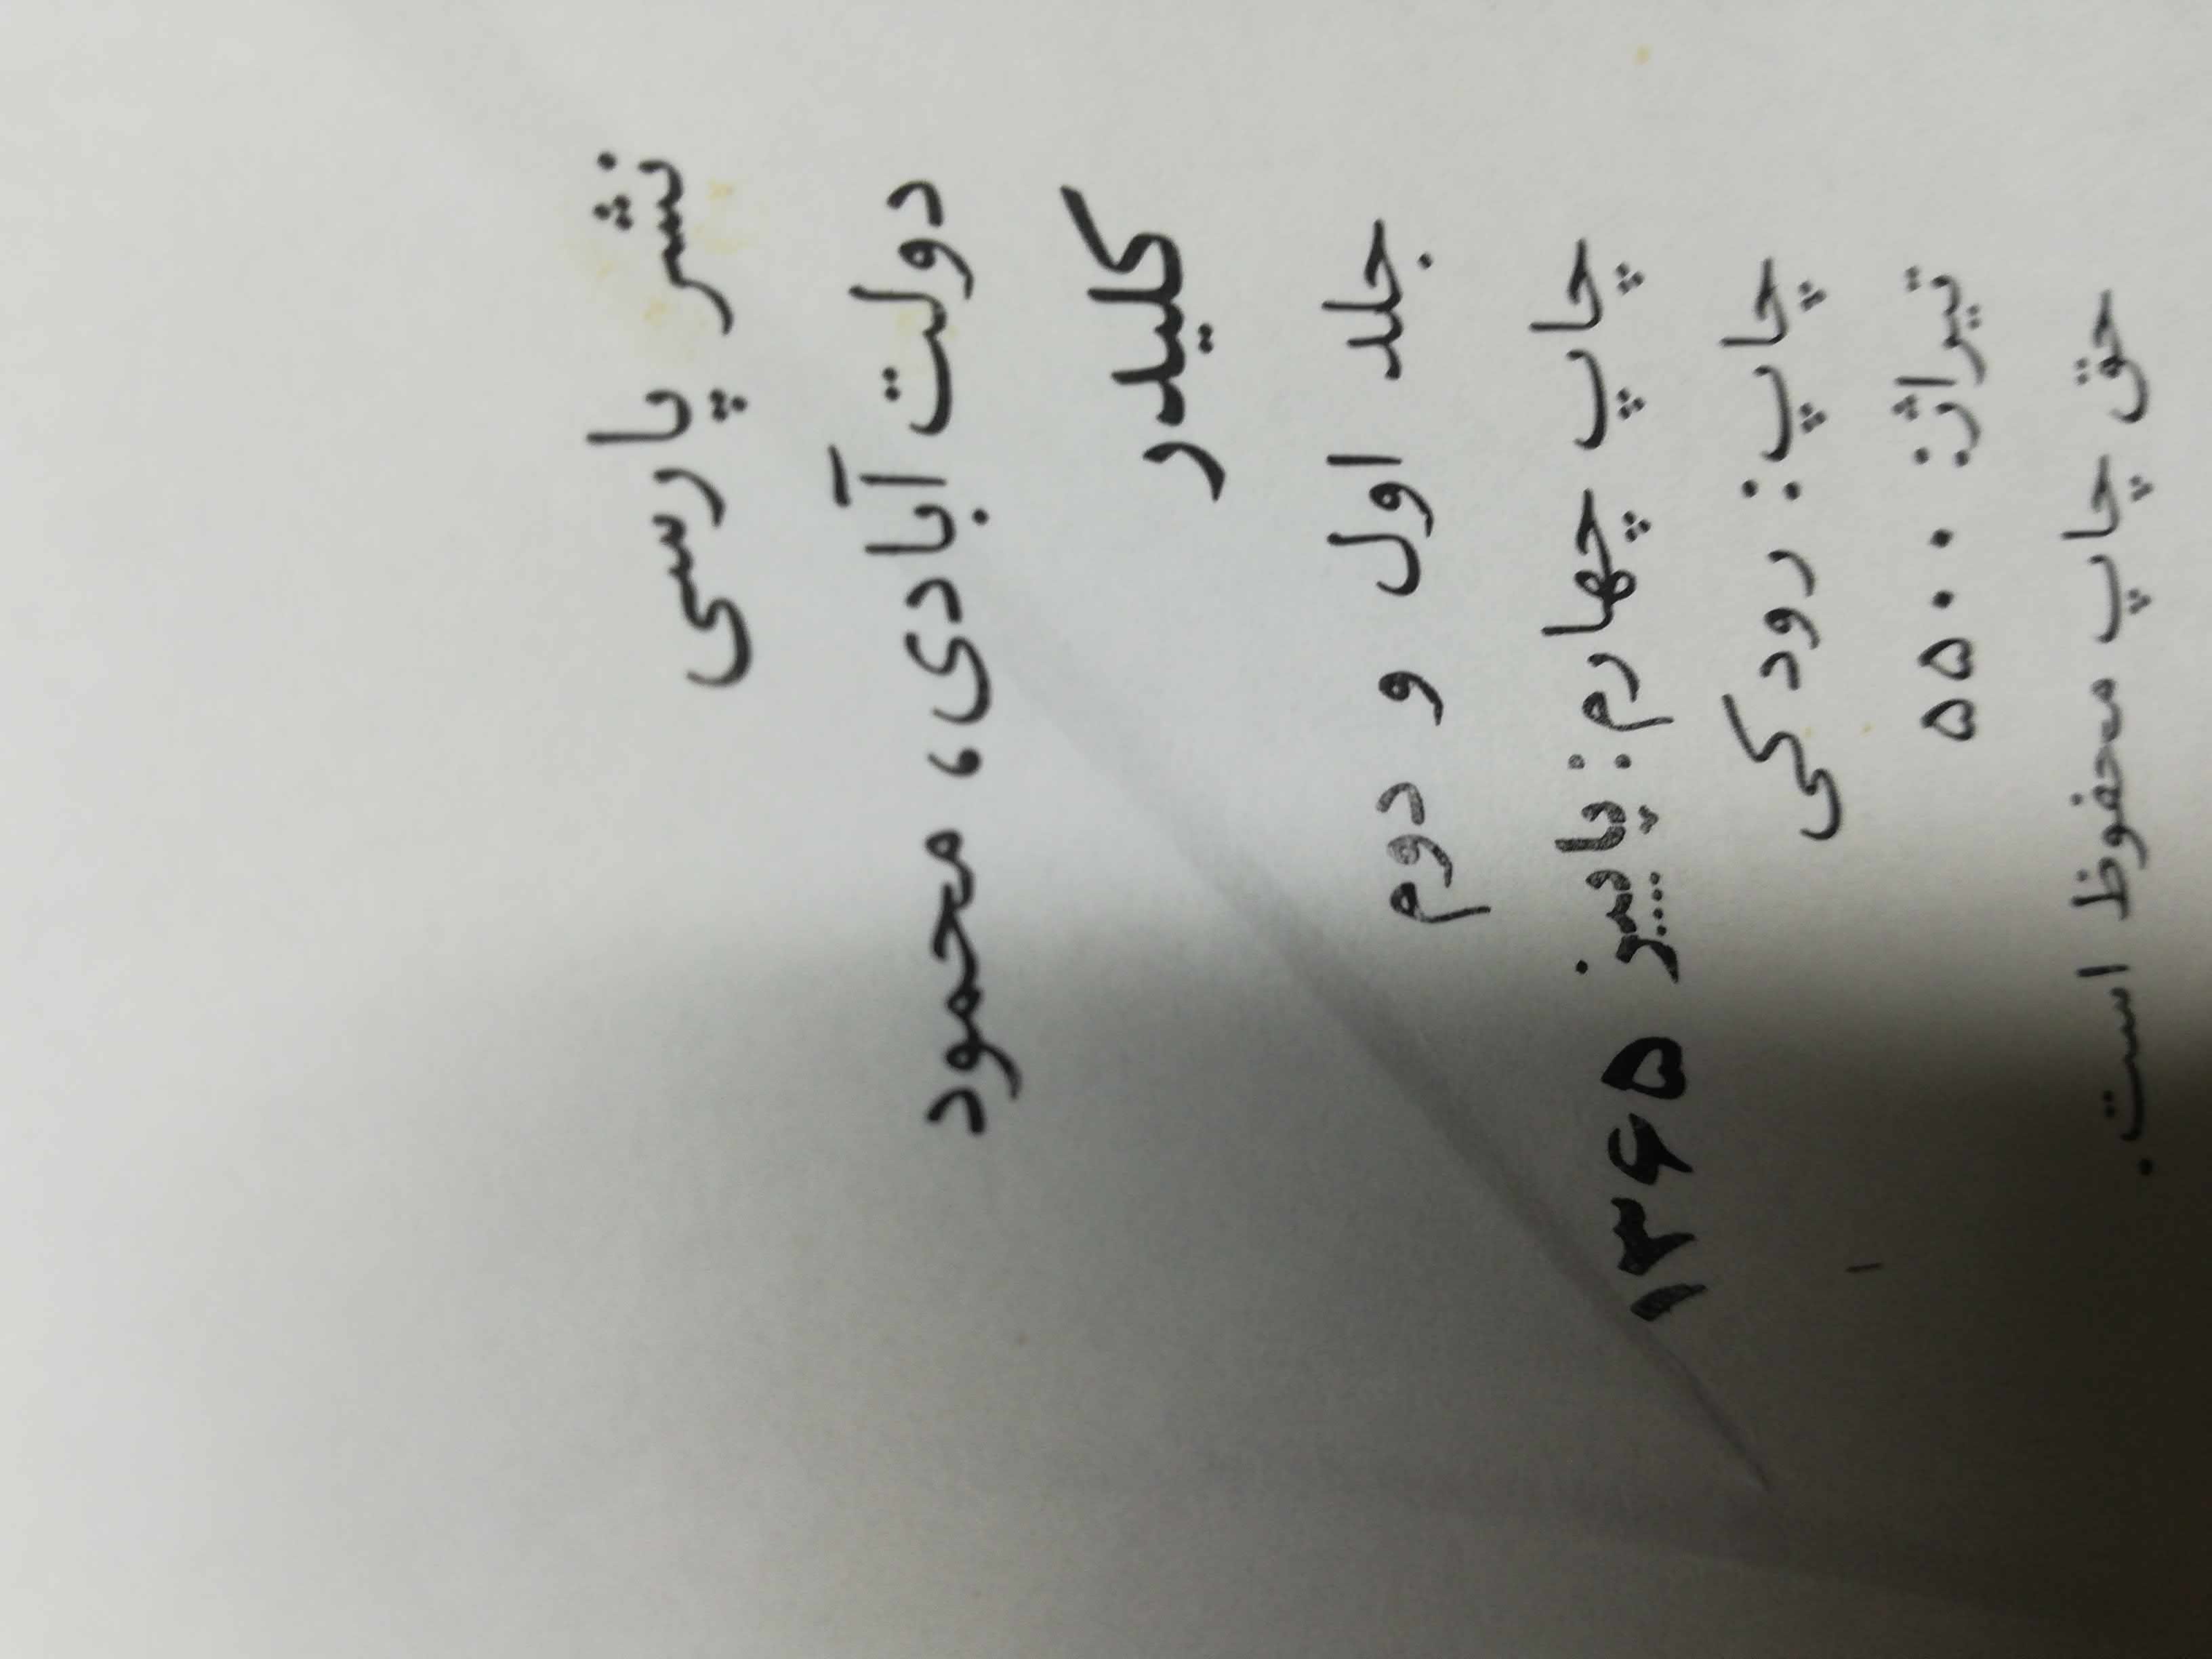 نشر پارسی
دولت آبادی، محمود
کلیدر
جلد اول و دوم
چاپ چهارم: پاییز ۱۳۶۵
چاپ: رودکی
تیراژ: ۵۵۰۰
حق چاپ محفوظ است.